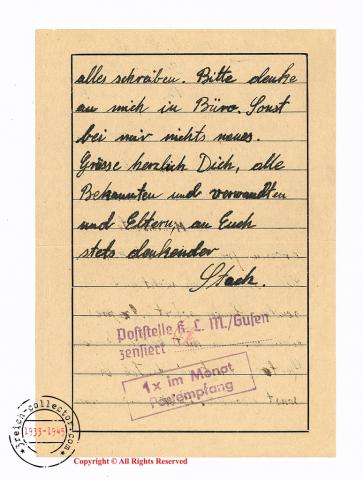 alles schreiben. Bitte denke
an mich in Büro. Sonst
bei mir nichts neues.
Grüsse herzlich Dich, alle
Bekannten und verwandten
und Eltern, an Euch
stets denkender
Stach.
Poststelle K. L. M./Gusen
zensiert
1x im Monat
Postempfang
3reich-collector.com
1933-1945
Copyright © All Rights Reserved